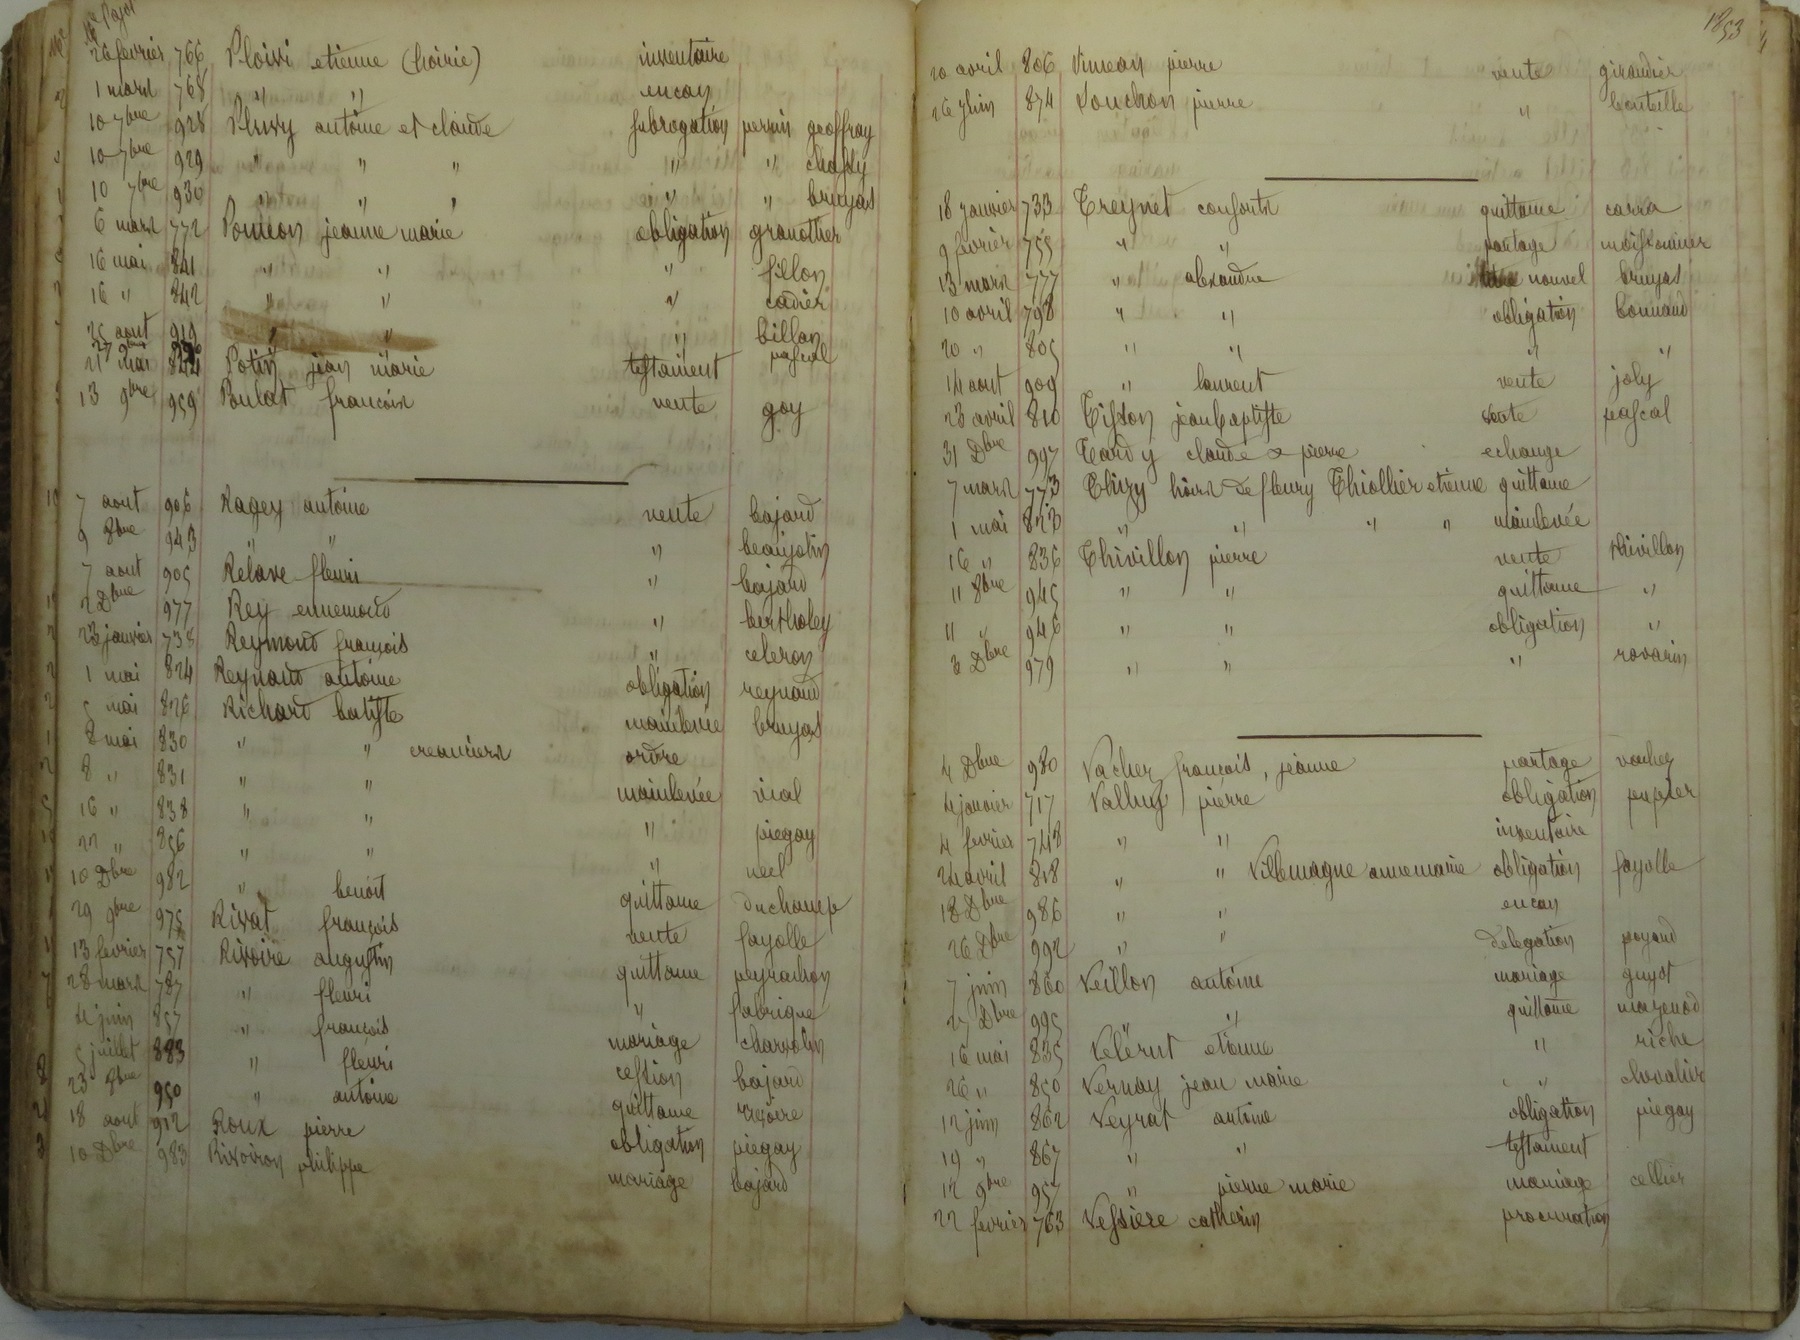 Me Pajot
26 fevrier 766 Ploivi etienne (hoirie) inventaire
1 mars 768 " " encan
10 7bre 928 Pluvy antoine et claude subrogation perrin geoffray
10 7bre 929 " " " " " chasly
10 7bre 930 " " " " " bruyas
6 mars 772 Poncon jeanne marie obligation granothier
16 mai 841 " " " fillon
16 " 842 " " " cadier
25 aout 919 " " " billon
27 mai 844 Potin jean marie testament pascal
13 9bre 959 Poulat francois vente goy
7 aout 906 Ragey antoine vente bajard
9 8bre 943 " " " beaujolin
7 aout 905 Relave fleuri " bajard
2 Dbre 977 Rey ennemond " bertholey
23 janvier 738 Reymond françois " celeron
1 mai 824 Reynaud antoine obligation reynaud
5 mai 826 Richard batiste mainlevée bruyas
8 mai 830 " " creanciers ordre
8 " 831 " " mainlevée vial
16 " 838 " " " piegay
22 " 856 " " " neel
10 Dbre 982 " benoit quittance duchamp
29 9bre 975 Rivat françois vente fayolle
13 fevrier 757 Rivoire augustin quittance peyrachon
28 mars 787 " fleuri " fabrique
4 juin 857 " françois mariage charvolin
5 juillet 883 " fleuri cession bajard
23 8bre 950 " antoine quittance
18 aout 912 Roux pierre obligation piegay
10 Dbre 983 Rivoiron philippe mariage bajard
1853
20 avril 806 Vincon pierre vente giraudier
26 juin 874 Souchon pierre " bouteille
18 janvier 733 Treynet consorts quittance carra
9 fevrier 755 " " partage moissonnier
13 mars 777 " alexandre nouvel bruyas
10 avril 798 " " obligation bonnand
20 " 805 " " " "
14 aout 909 " laurent vente joly
23 avril 810 Tisson jean baptiste vente pascal
31 Dbre 997 Tardy claude & pierre echange
7 mars 773 Thizy hoirs de fleury Thiollier etienne quittance
1 mai 823 " " " " mainlevée
16 " 836 Thivillon pierre vente thivillon
11 8bre 945 " " quittance "
11 " 946 " " obligation "
3 Dbre 979 " " " ravarin
4 Dbre 980 Vacher françois, jeanne partage vacher
4 janvier 717 Valluy pierre obligation pupier
4 fevrier 748 " " inventaire
24 avril 818 " " Villemagne annemarie obligation fayolle
18 Dbre 986 " " encan
26 Dbre 992 " " delegation poyard
7 juin 860 Veillon antoine mariage guyot
27 Dbre 995 " quittance mazenod
16 mai 835 Velërut etienne " riche
26 " 850 Vernay jean marie " chevalier
12 juin 862 Veyrat antoine obligation piegay
19 " 867 " " testament
12 9bre 957 " pierre marie mariage cellier
22 fevrier 763 Vessiere catherin procuration